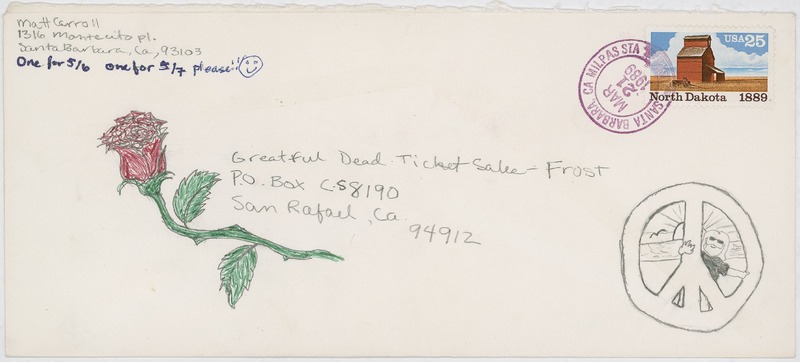 Matt Carroll
1316 Montecito pl.
Santa Barbara, Ca, 93103
One for 5/6 one for 5/7 please!!
USA25
North Dakota 1889
SANTA BARBARA, CA MILPAS STA
MAR
21
1989
Greatful Dead Ticket Sale - Frost
P.O. Box C.S8190
San Rafael, Ca.
94912